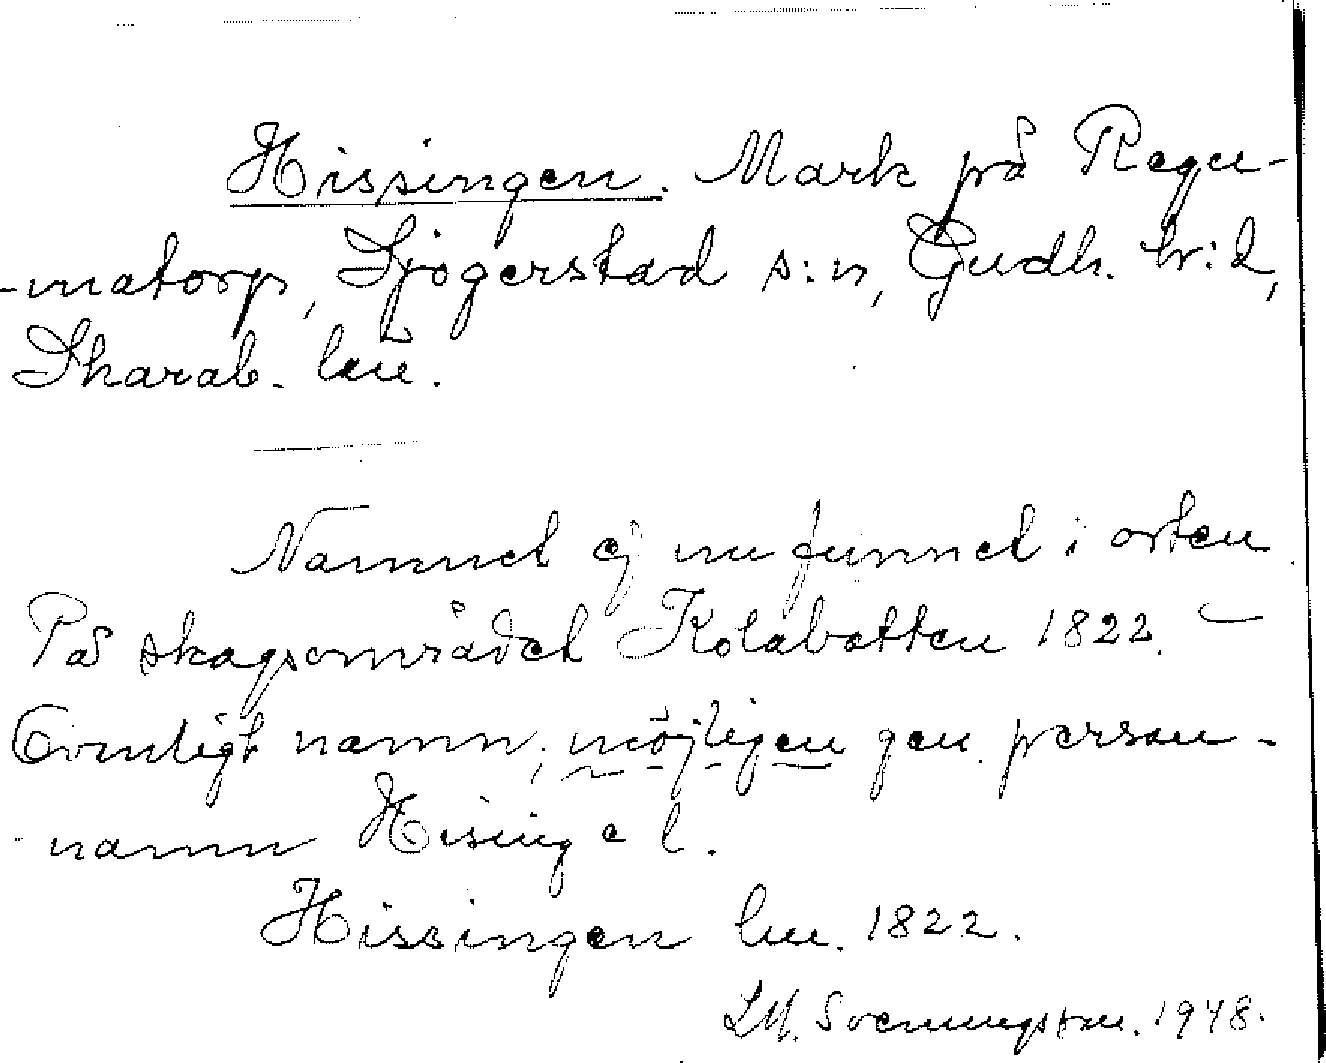 Hissingen. Mark på Regu-
-matorp, Sjögerstad s:n, Gudh. hr:d,
Skarab. län.
Namnet ej nu funnet i orten
På skogsområdet Kolabotten 1822. –
Ovanligt namn, möjligen gen. person-
-namn Hising e l.
Hissingen lm. 1822.
LM. Svenungsson. 1948.